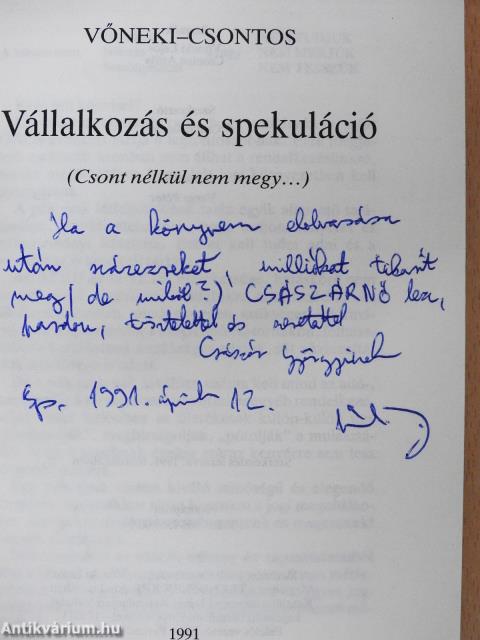 VŐNEKI–CSONTOS
Vállalkozás és spekuláció
(Csont nélkül nem megy…)
Ha a könyvem elolvasása
után százezreket, milliókat takarít
meg (de miből?) CSÁSZÁRNŐ lesz,
pardon, tisztelettel és szeretettel
Császár Györgyinek
Bp. 1991. április 12.
1991
Antikvárium.hu